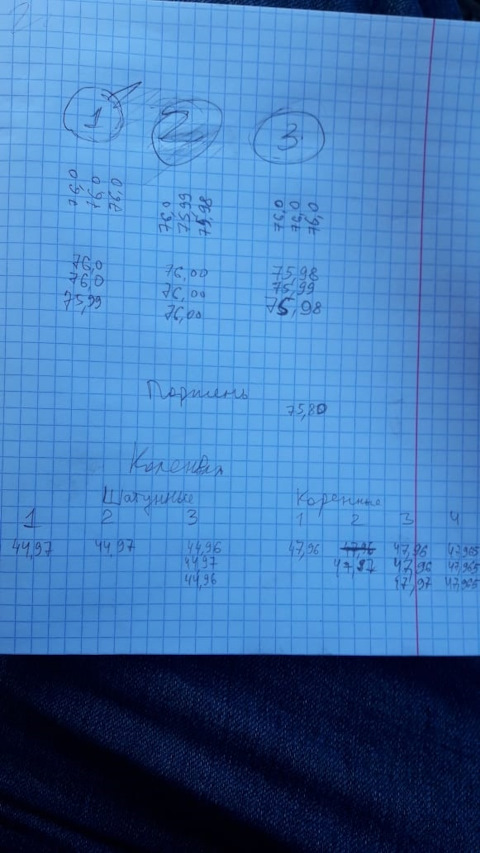 1 2 3
76,0 76,0 76,0
76,0 75,99 75,98
76,0 76,0 76,0
76,0 76,00 75,98
76,0 76,00 75,99
75,99 76,00 75,98
Поршень
75,80
Коленвал
Шатунные Коренные
1 2 3 1 2 3 4
44,97 44,97 44,96 47,96 47,96 47,96 47,965
44,97 47,97 47,96 47,965
44,96 47,97 47,965